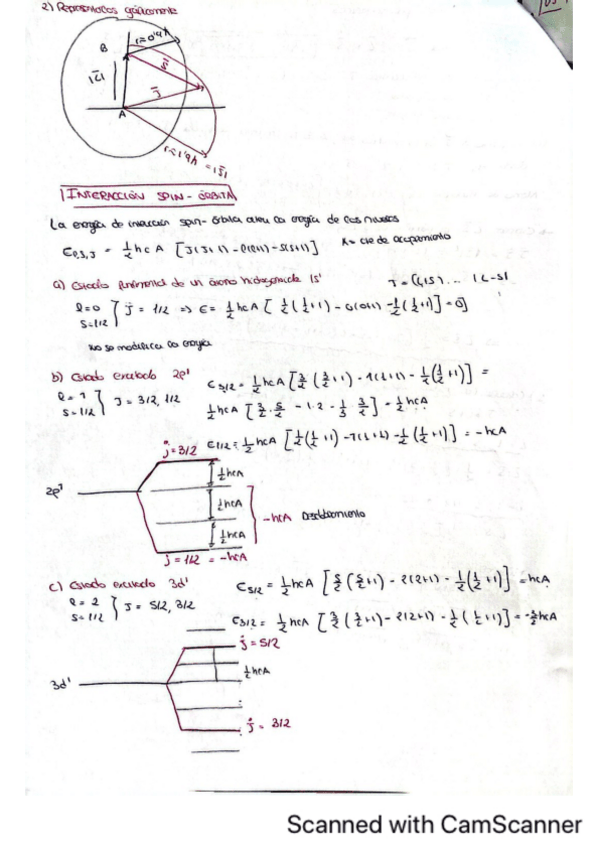 2) Representarlos gráficamente
B
l=0'9h
|L̄|
s̄
J̄
A
INTERACCIÓN SPIN-ÓRBITA
La energía de interacción spin-órbita altera la energía de los niveles
E_{l,s,J} = 1/2 hcA [J(J+1) - l(l+1) - s(s+1)]
A = cte de acoplamiento
a) Estado fundamental de un átomo hidrogenoide 1s¹
J = (l+s) ... |l-s|
l=0
s=1/2 } J = 1/2 ⇒ E = 1/2 hcA [1/2 (1/2+1) - 0(0+1) - 1/2 (1/2+1)] = 0]
No se modifica la energía
b) Estado excitado 2p¹
E 3/2 = 1/2 hcA [3/2 (3/2+1) - 1(1+1) - 1/2 (1/2+1)] =
l = 1
s = 1/2 } J = 3/2, 1/2
1/2 hcA [3/2 · 5/2 - 1·2 - 1/2 3/2] = 1/2 hcA
E 1/2 = 1/2 hcA [1/2 (1/2+1) - 1(1+1) - 1/2 (1/2+1)] = -hcA
j = 3/2
1/2 hcA
2p¹
1/2 hcA
-hcA Desdoblamiento
1/2 hcA
j = 1/2 = -hcA
c) Estado excitado 3d¹
E 5/2 = 1/2 hcA [5/2 (5/2+1) - 2(2+1) - 1/2 (1/2+1)] = hcA
l = 2
s = 1/2 } J = 5/2, 3/2
E 3/2 = 1/2 hcA [3/2 (3/2+1) - 2(2+1) - 1/2 (1/2+1)] = -3/2 hcA
j = 5/2
1/2 hcA
3d¹
j = 3/2
Scanned with CamScanner